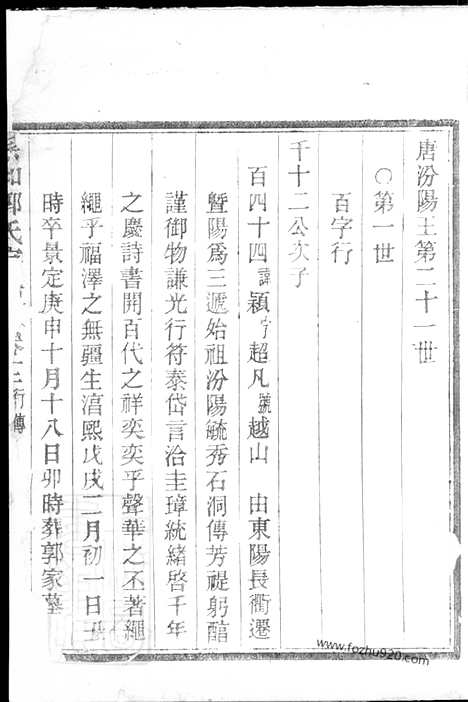 唐汾陽王第二十一世
○第一世
百字行
千十二公次子
百四十四諱穎字超凡號越山 由東陽長衢遷
暨陽爲三遞始祖汾陽毓秀石洞傳芳禔躬醕
謹御物謙光行符泰岱言洽圭璋統緒啓千年
之慶詩書開百代之祥奕奕乎聲華之丕著繩
繩乎福澤之無疆生淳熙戊戌二月初一日丑
時卒景定庚申十月十八日卯時葬郭家墓
郭氏
行傳
www.fozhu920.com